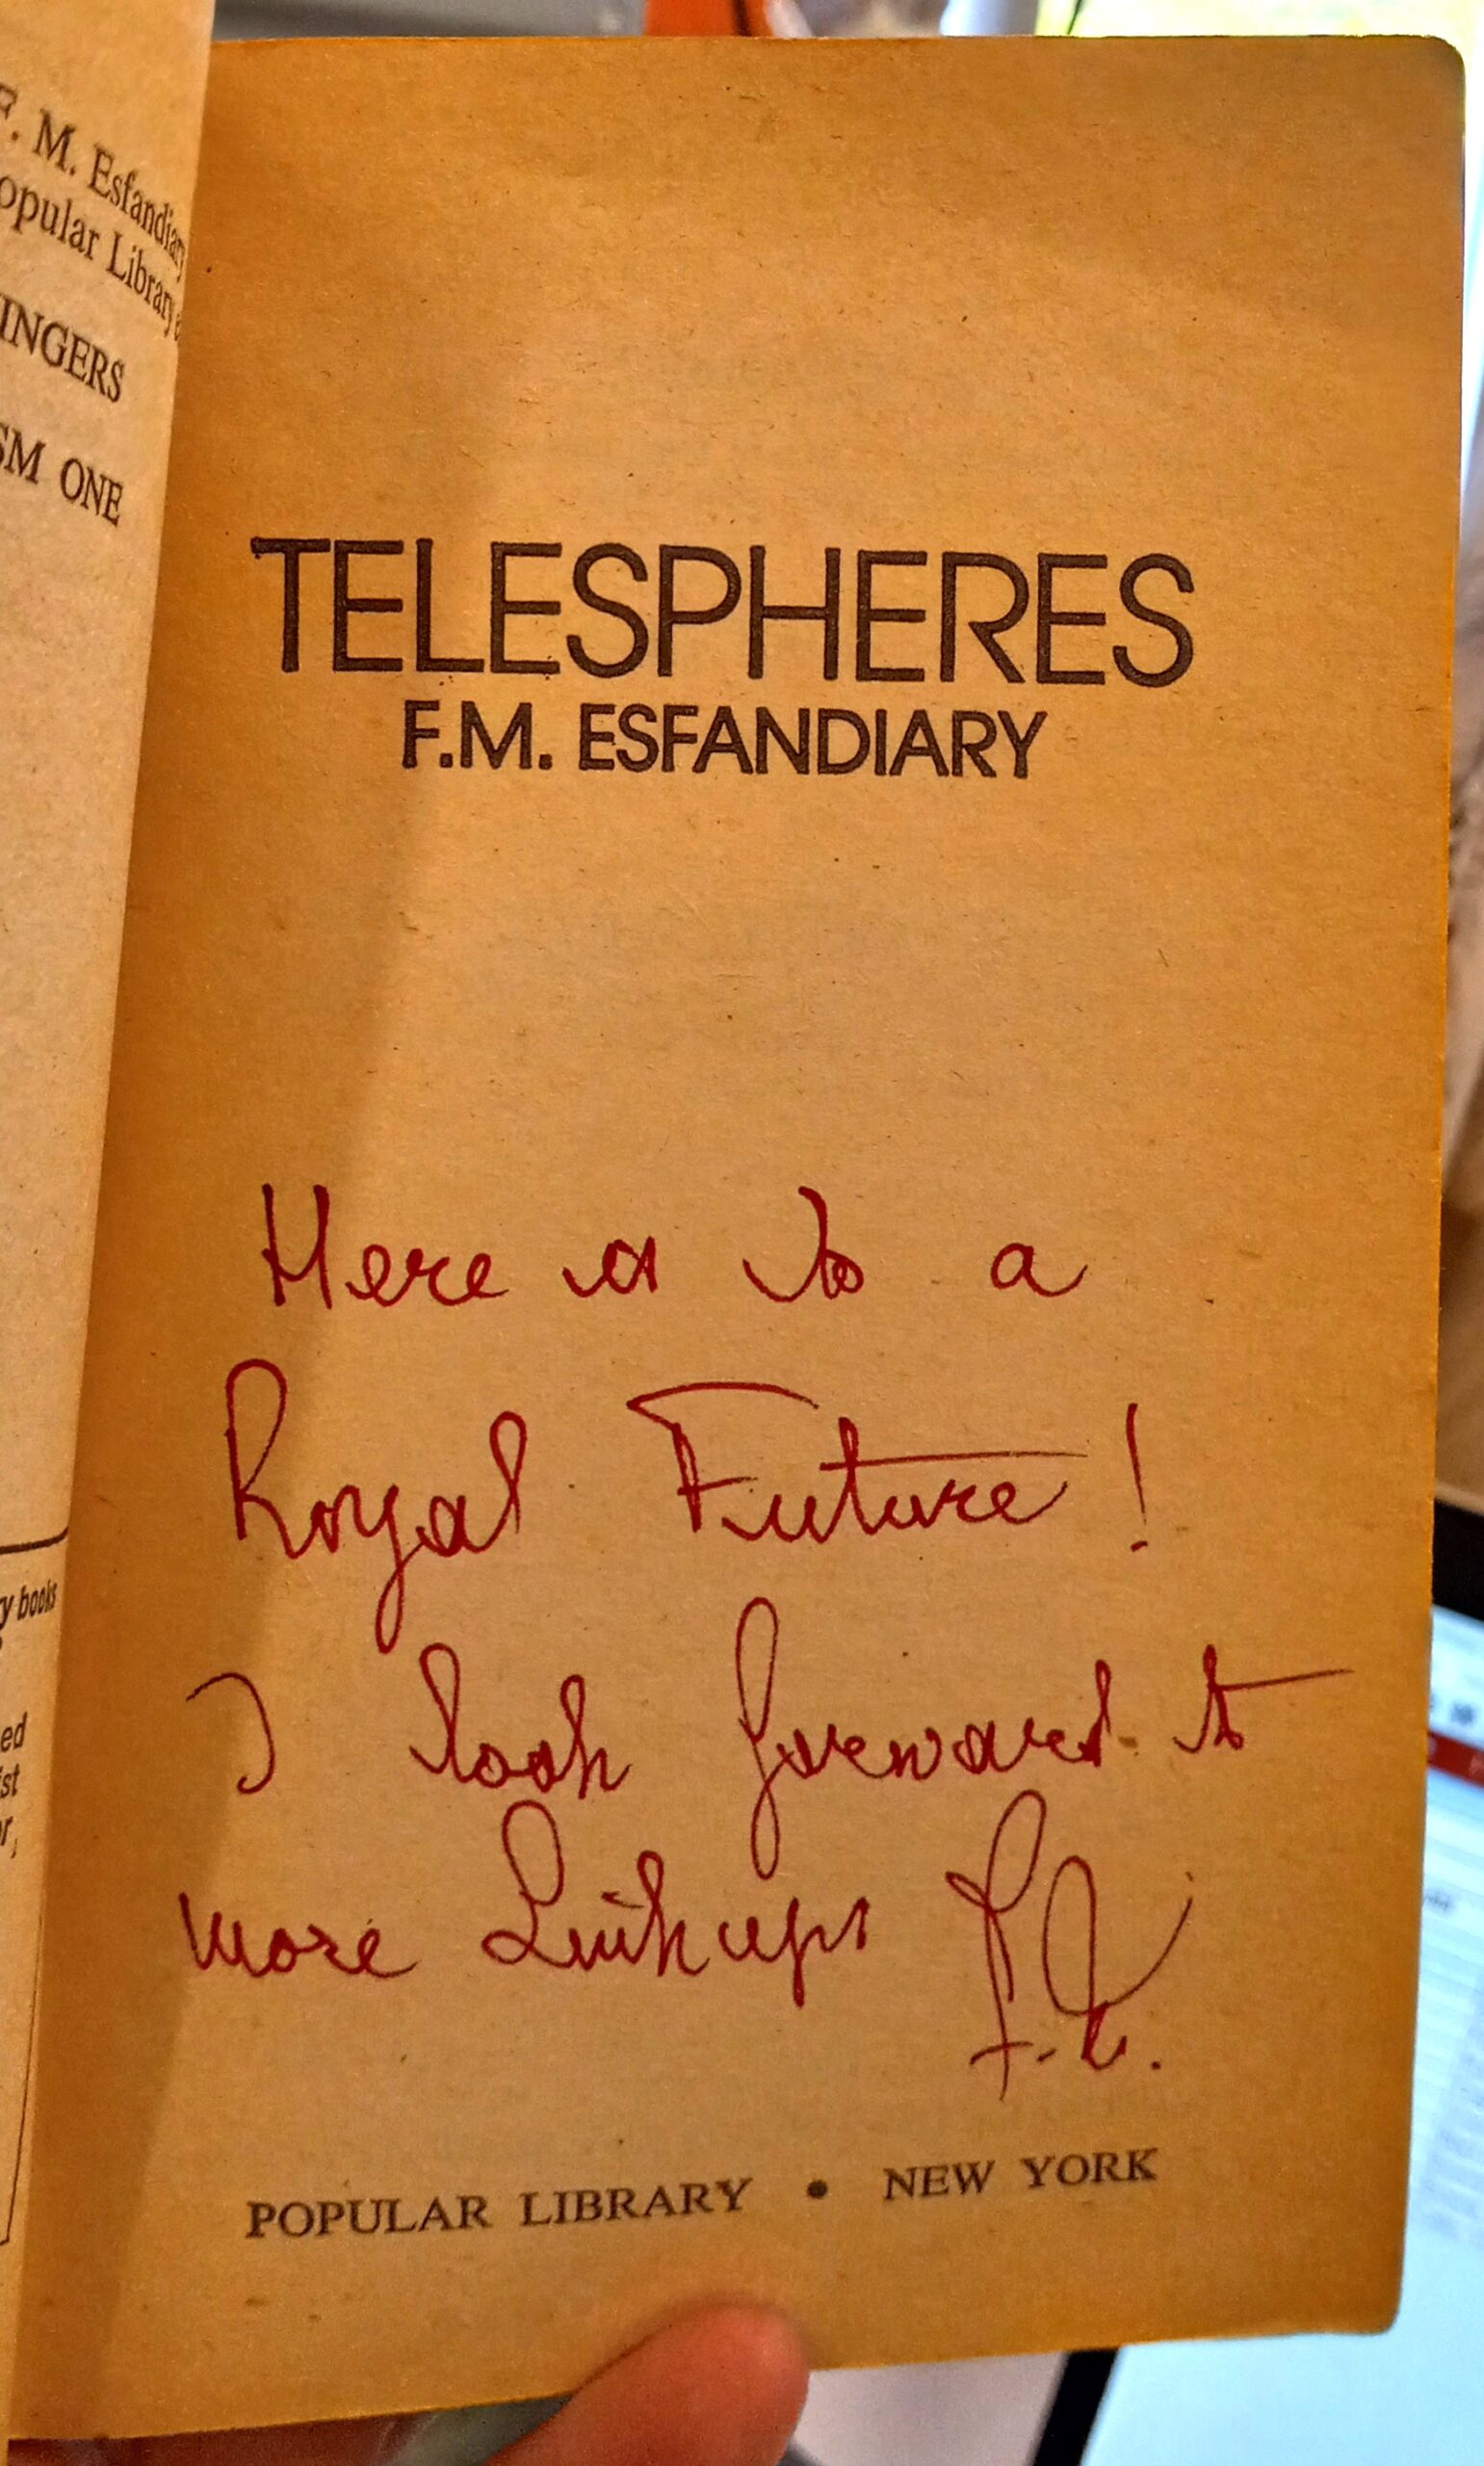 F. M. Esfandiary
opular Library
INGERS
SM ONE
y books
ed
ist
or,
TELESPHERES
F.M. ESFANDIARY
Here is to a
Royal Future!
I look forward to
more Linkups F.E.
POPULAR LIBRARY • NEW YORK